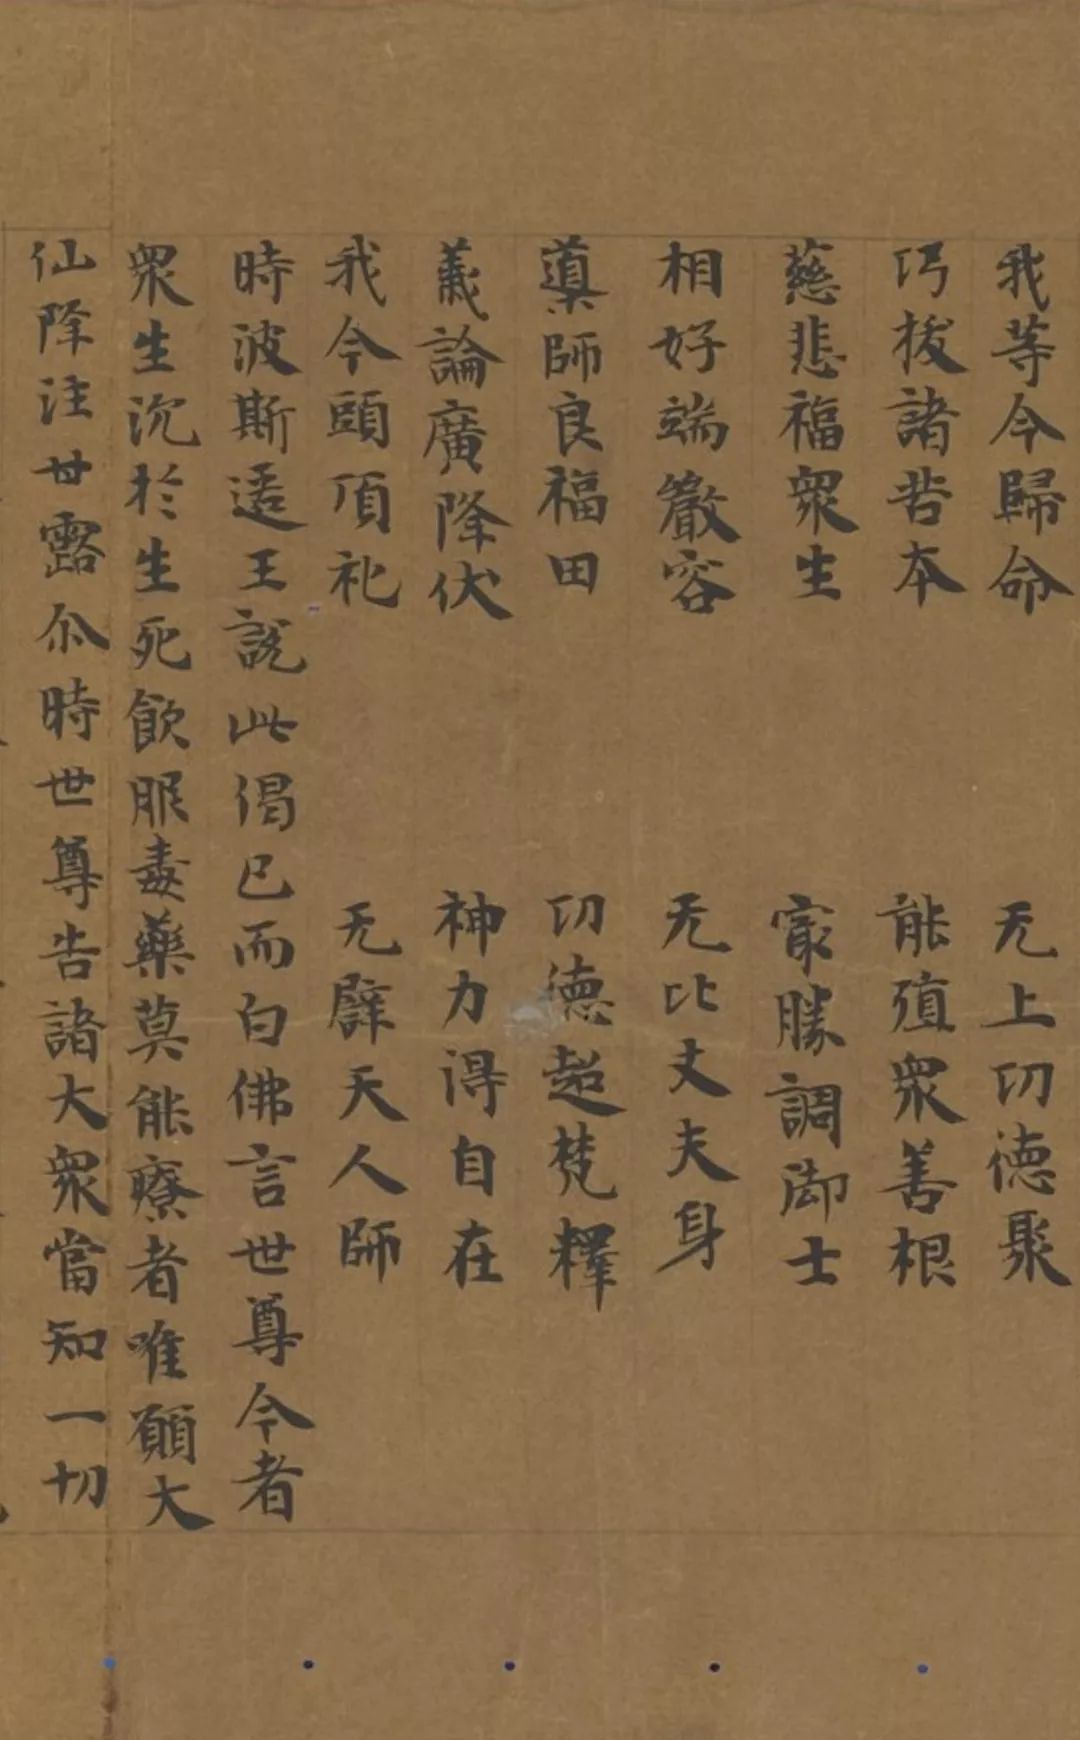 我等今歸命　无上功德聚
巧拔諸苦本　能殖衆善根
慈悲福衆生　冣勝調御士
相好端嚴容　无比丈夫身
導師良福田　功德超梵釋
義論廣降伏　神力得自在
我今頭頂礼　无譬天人師
時波斯匿王說此偈已而白佛言世尊今者
衆生沉於生死飲服毒藥莫能療者唯願大
仙降注甘露尒時世尊告諸大衆當知一切